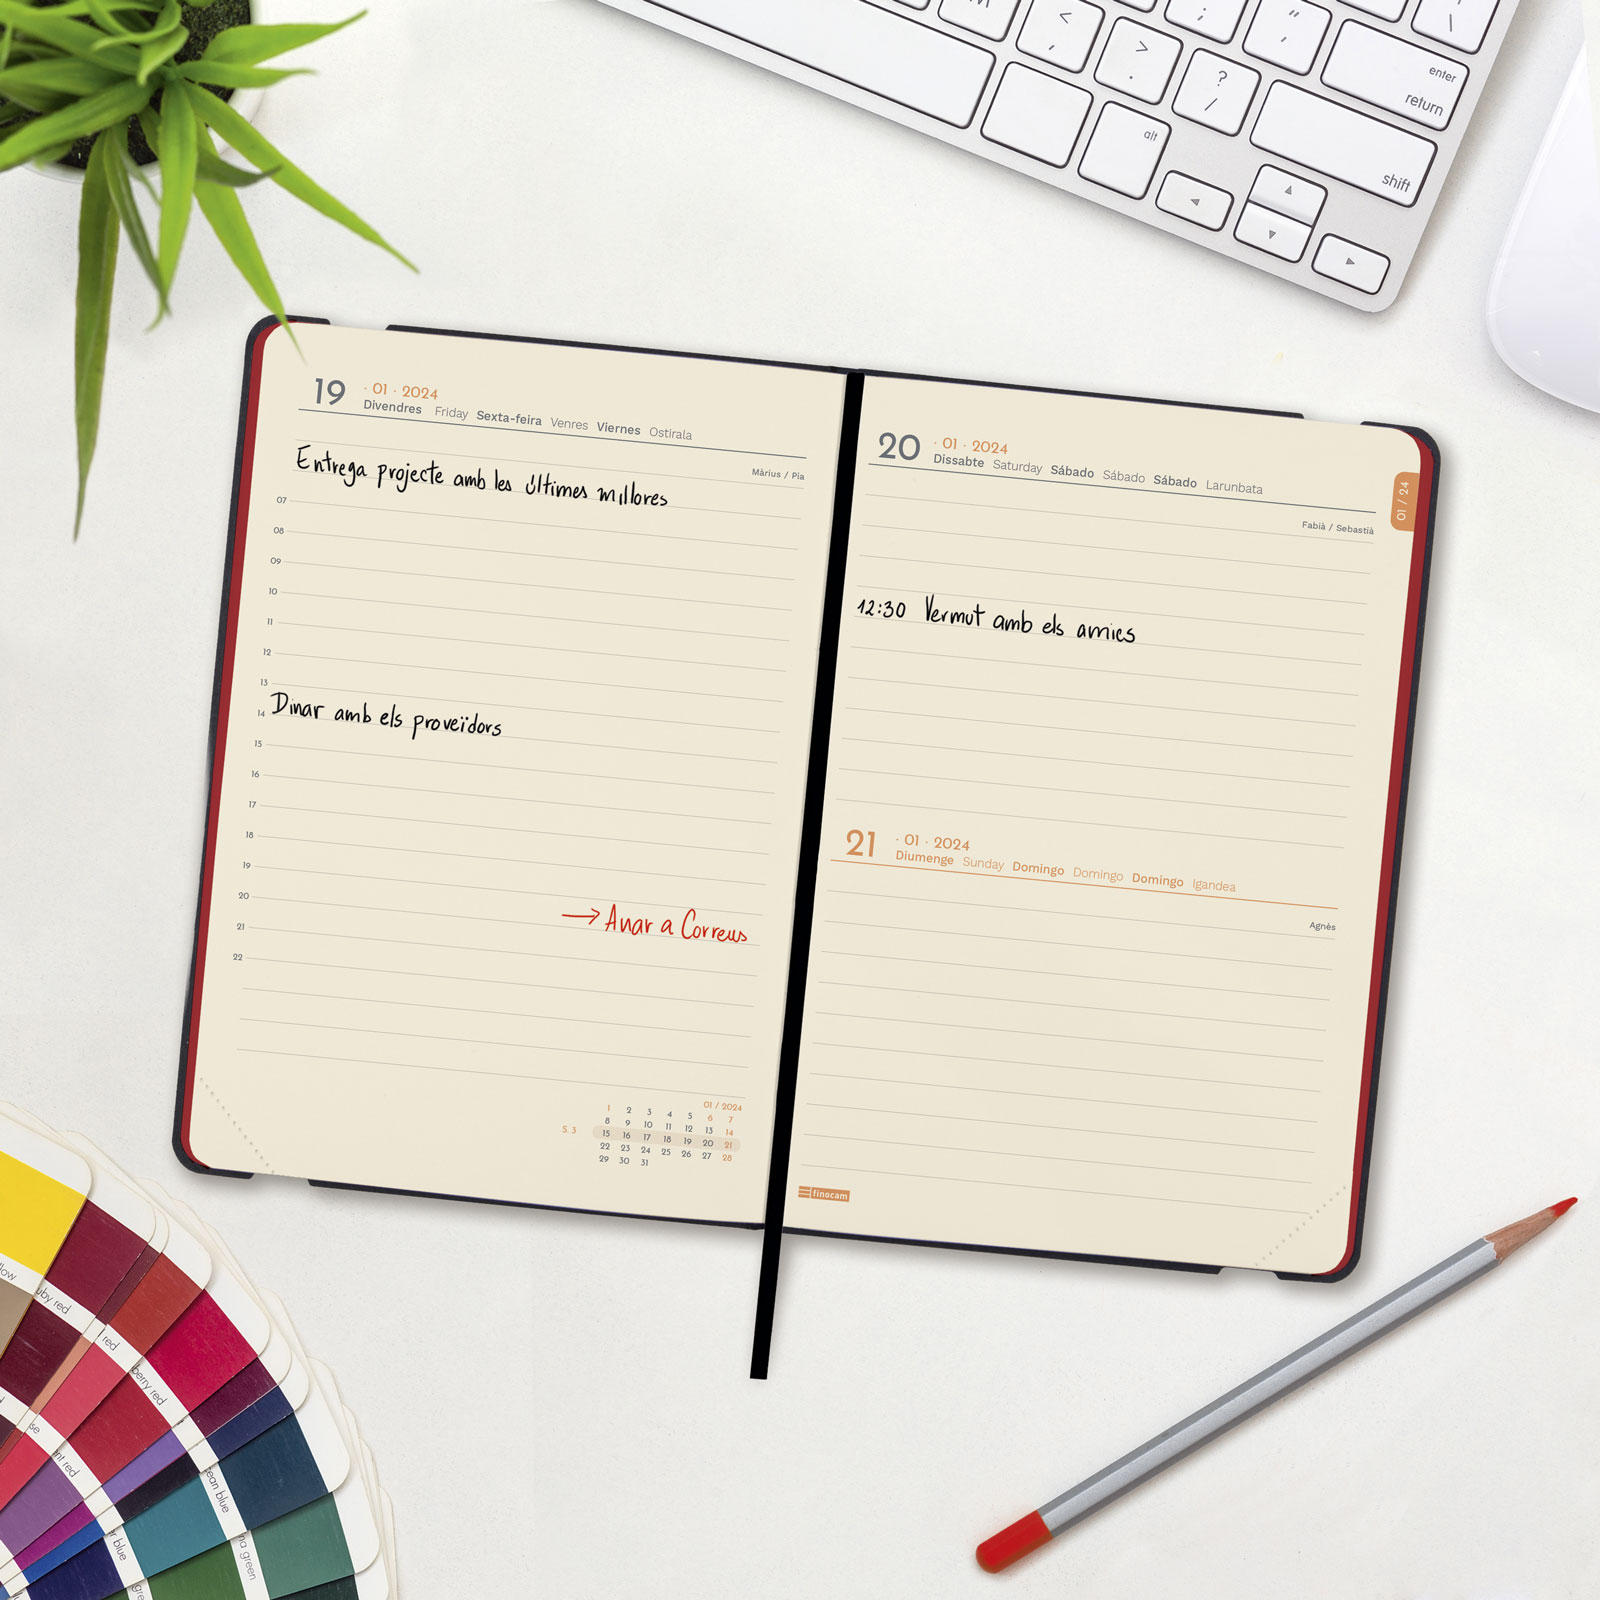 enter
return
alt
shift
19 · 01 · 2024
Divendres Friday Sexta-feira Venres Viernes Ostirala
Màrius / Pia
Entrega projecte amb les últimes millores
07
08
09
10
11
12
13
14 Dinar amb els proveïdors
15
16
17
18
19
20
→ Anar a Correus
21
22
01 / 2024
1 2 3 4 5 6 7
8 9 10 11 12 13 14
S. 3 15 16 17 18 19 20 21
22 23 24 25 26 27 28
29 30 31
20 · 01 · 2024
Dissabte Saturday Sábado Sábado Sábado Larunbata
01 / 24
Fabià / Sebastià
12:30 Vermut amb els amics
21 · 01 · 2024
Diumenge Sunday Domingo Domingo Domingo Igandea
Agnès
finocam
red
blue
green